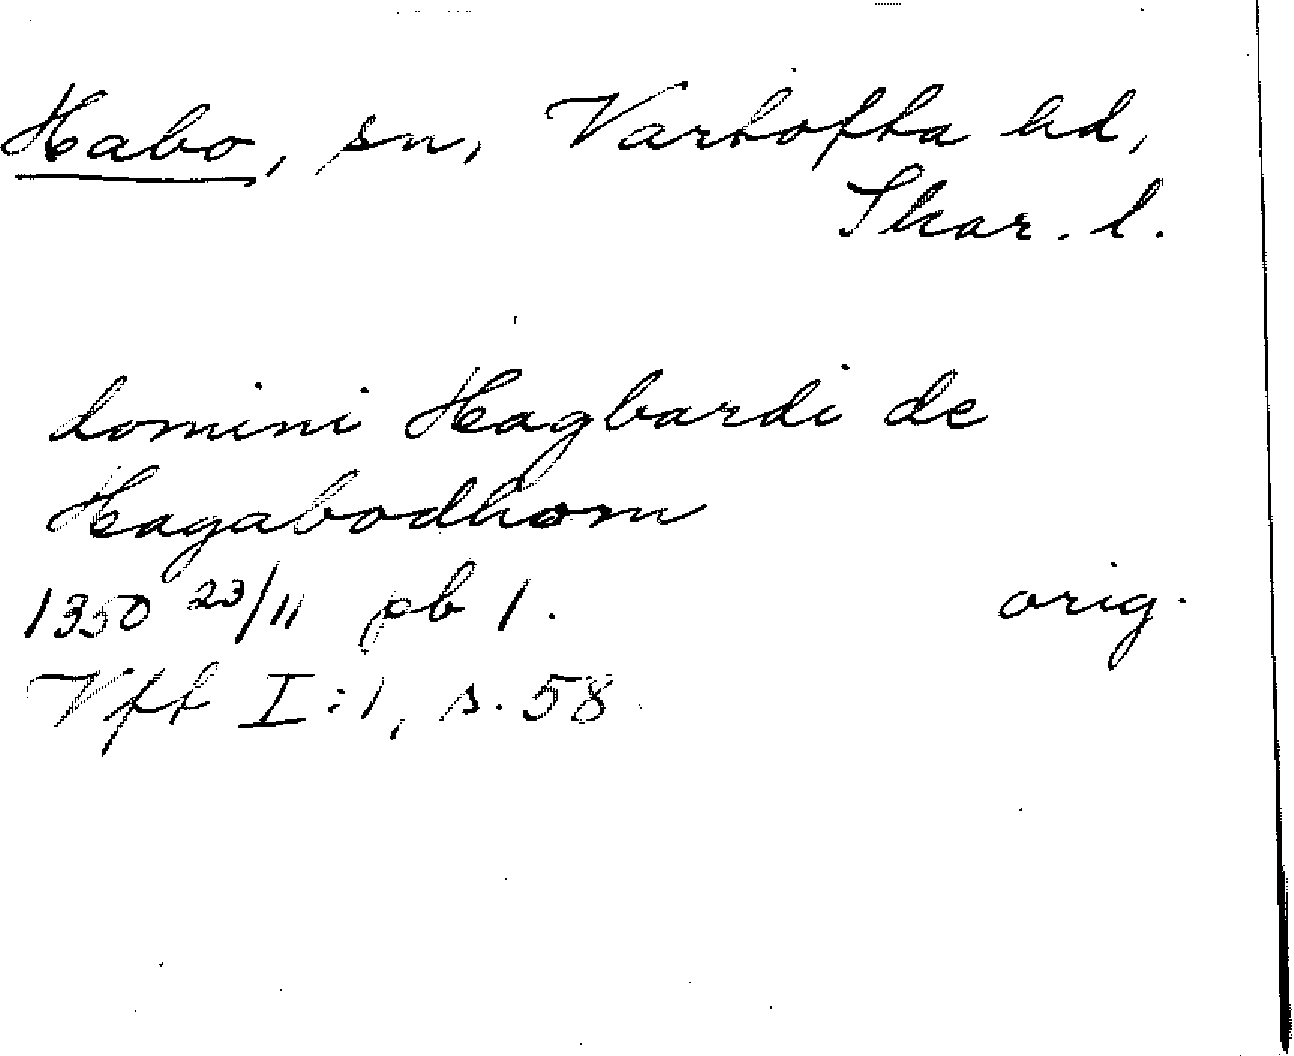 Habo, sn, Vartofta hd,
Skar. l.
domini Hagbardi de
Hagabodhom
1350 23/11 pb 1.
orig.
Vff I:1, s. 58.